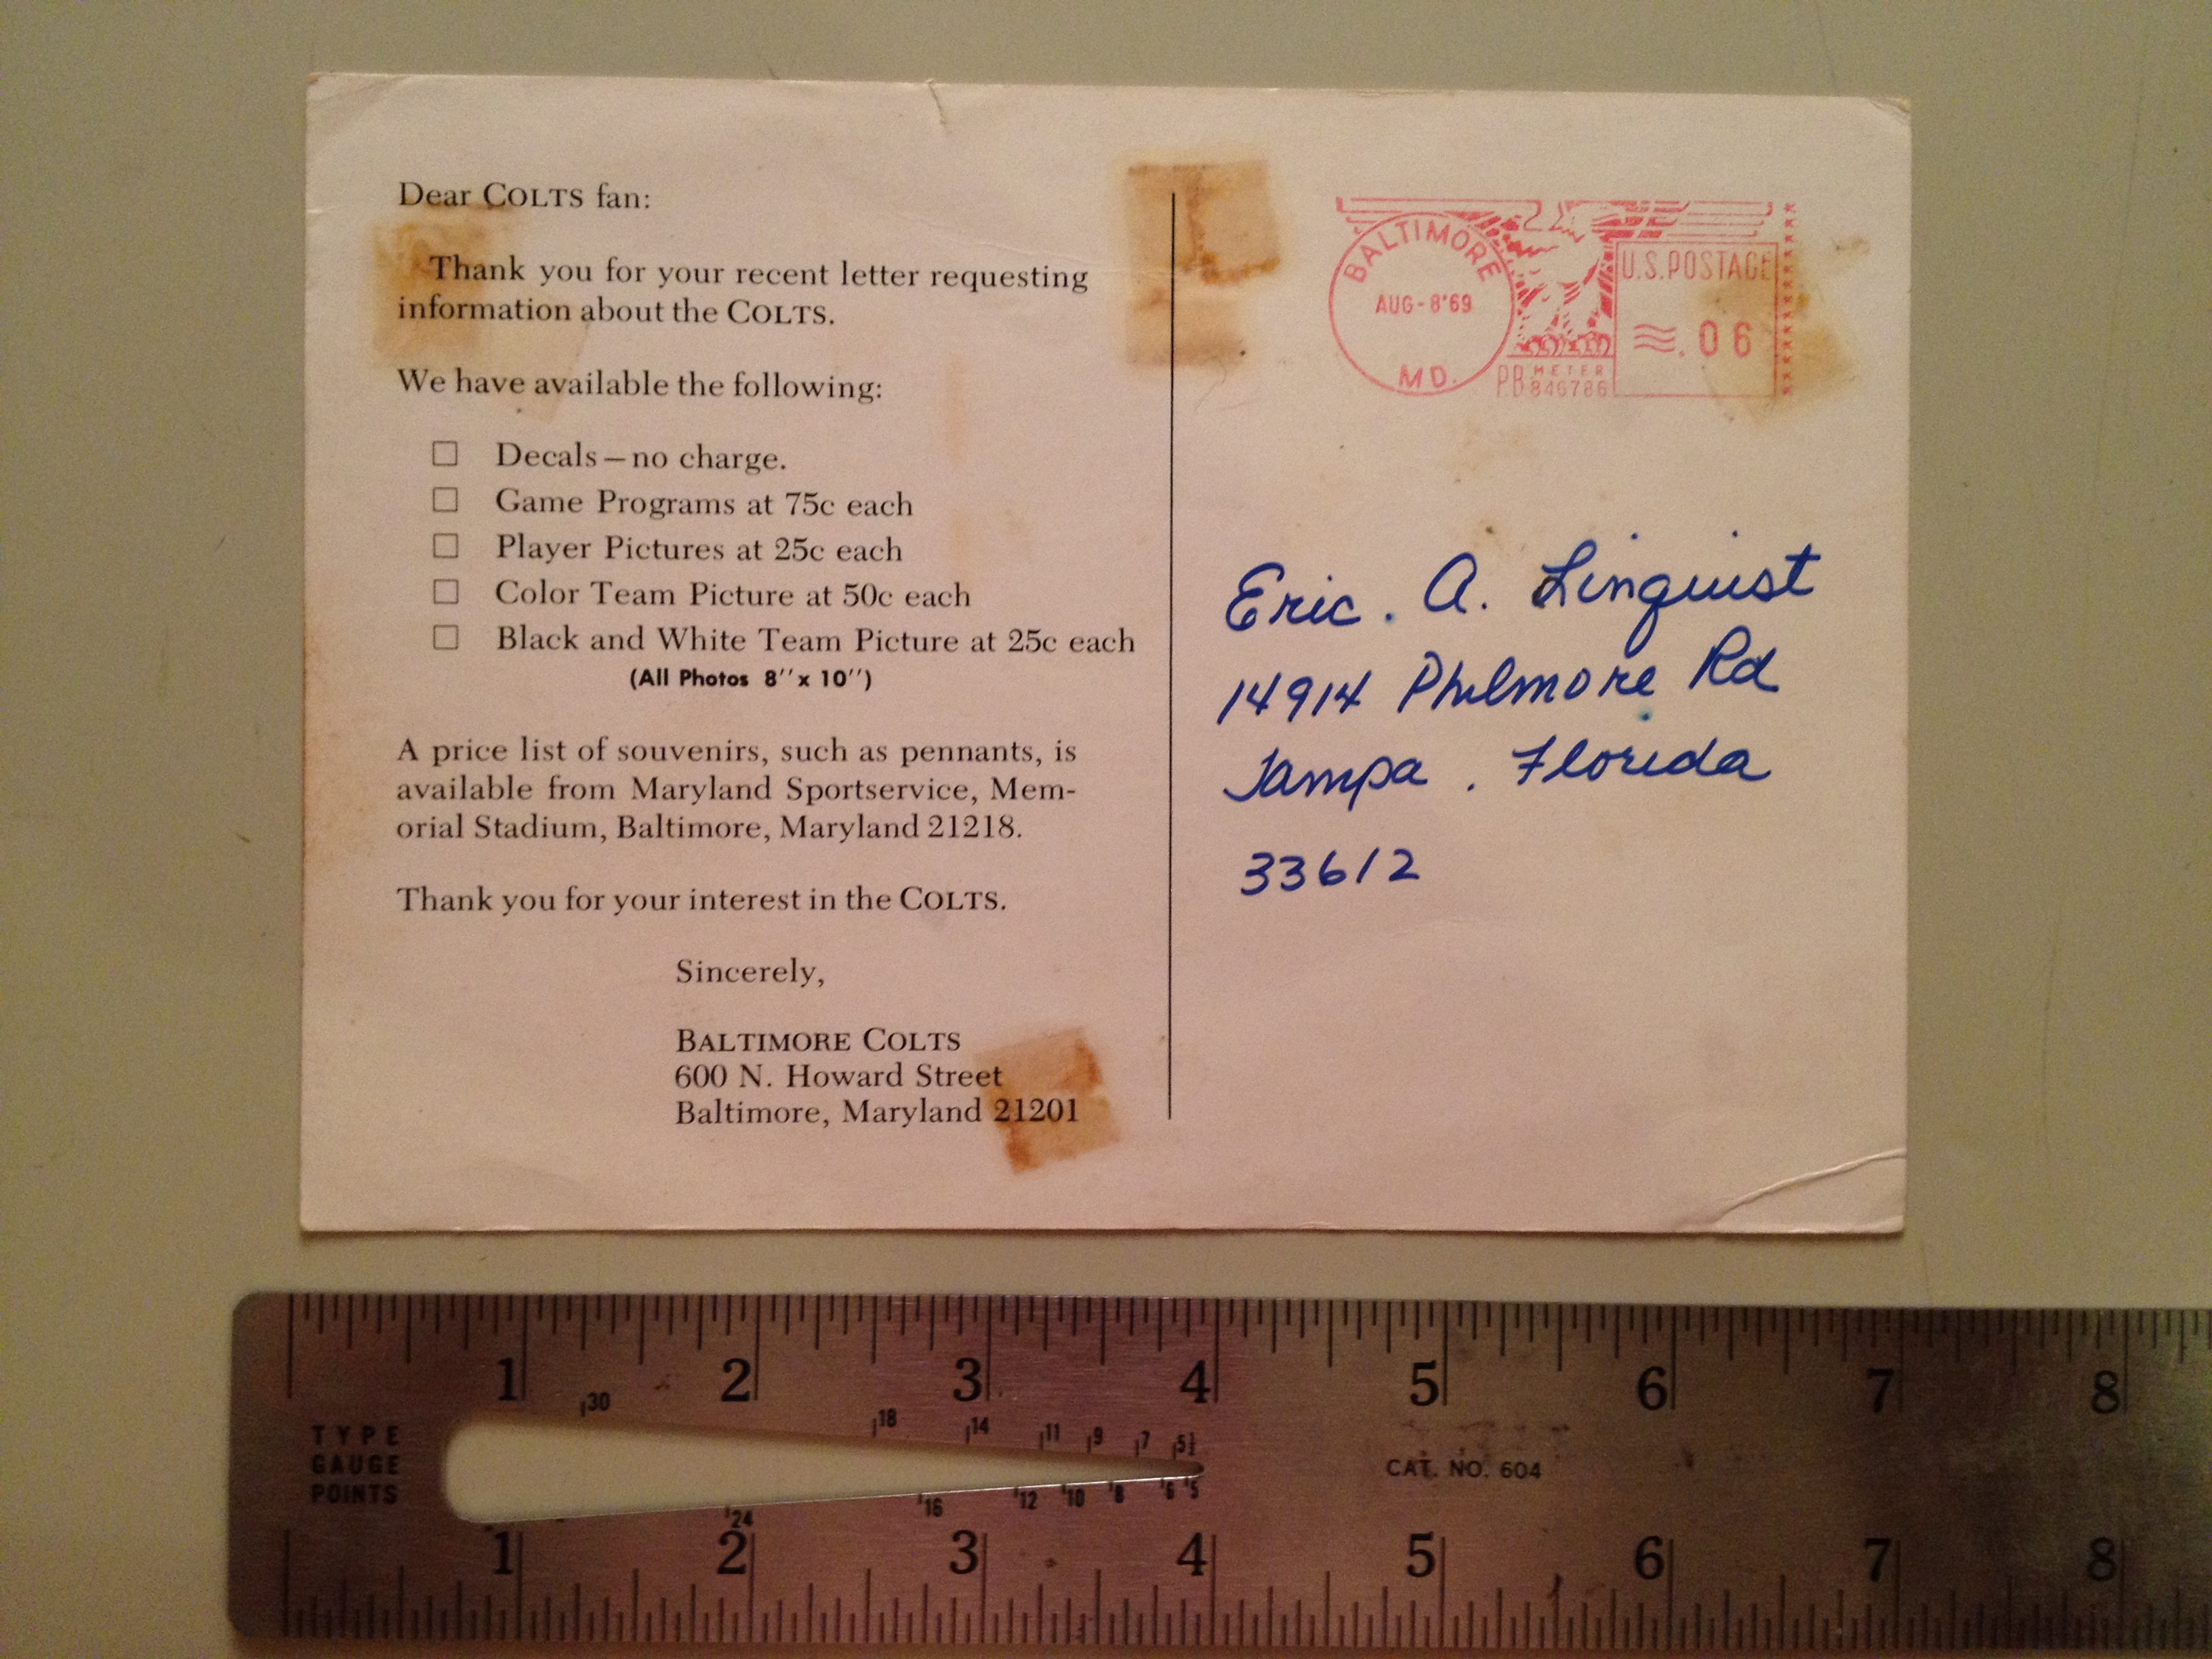 Dear COLTS fan:
Thank you for your recent letter requesting
information about the COLTS.
We have available the following:
☐ Decals—no charge.
☐ Game Programs at 75c each
☐ Player Pictures at 25c each
☐ Color Team Picture at 50c each
☐ Black and White Team Picture at 25c each
(All Photos 8''x 10'')
A price list of souvenirs, such as pennants, is
available from Maryland Sportservice, Mem-
orial Stadium, Baltimore, Maryland 21218.
Thank you for your interest in the COLTS.
Sincerely,
BALTIMORE COLTS
600 N. Howard Street
Baltimore, Maryland 21201
BALTIMORE
AUG-8'69
MD.
PB METER
846786
U.S.POSTAGE
.06
Eric. A. Linquist
14914 Philmore Rd
Tampa. Florida
33612
1 2 3 4 5 6 7 8
30 18 14 11 9 7 5½
TYPE
GAUGE
POINTS
CAT. NO. 604
24 16 12 10 8 6 5
1 2 3 4 5 6 7 8